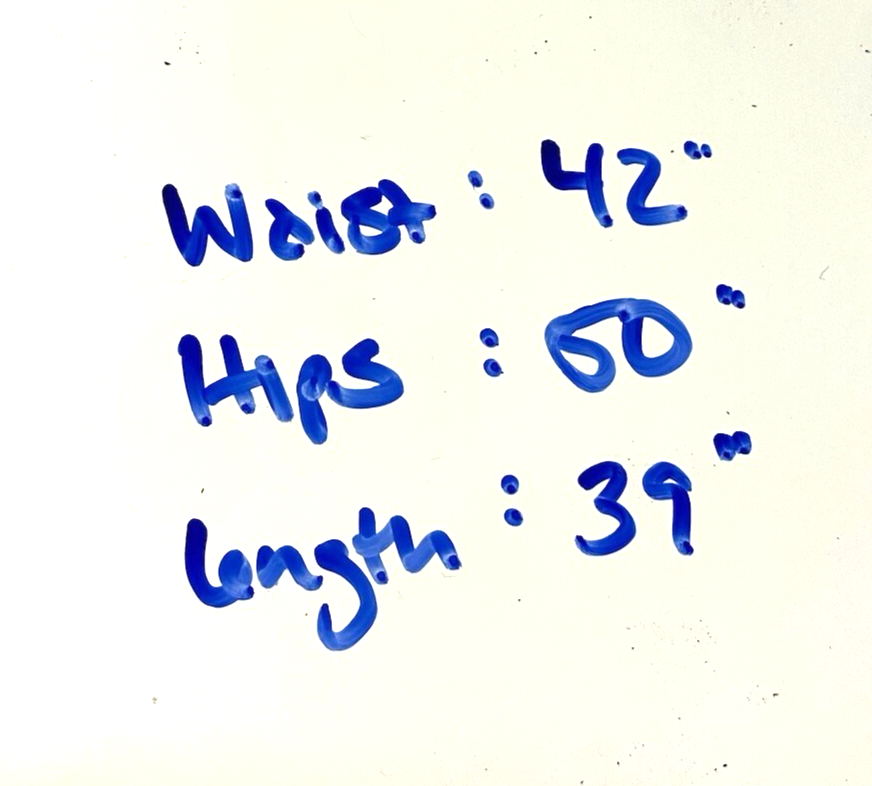 Waist : 42"
Hips : 50"
Length : 39"